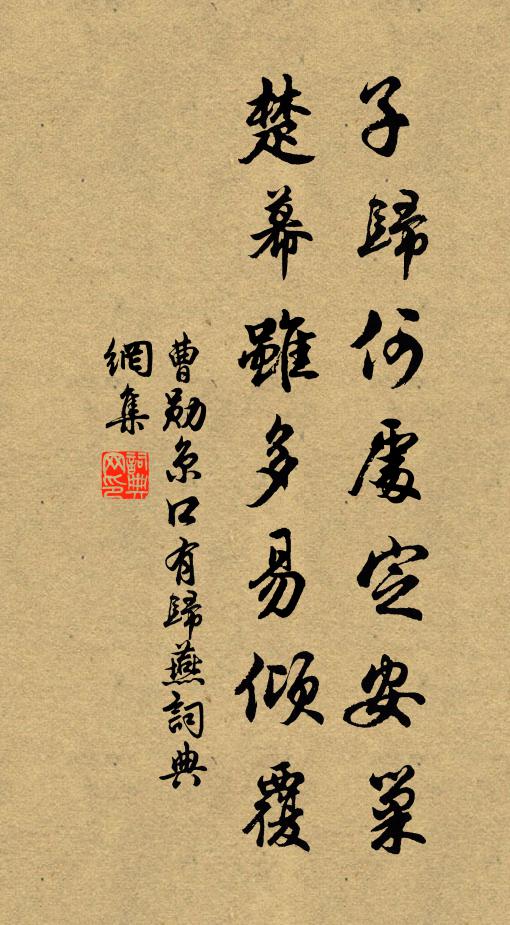 子歸何處定安巢
楚幕雖多易傾覆
曹勛京口有歸燕詞典
網集
詞典网印